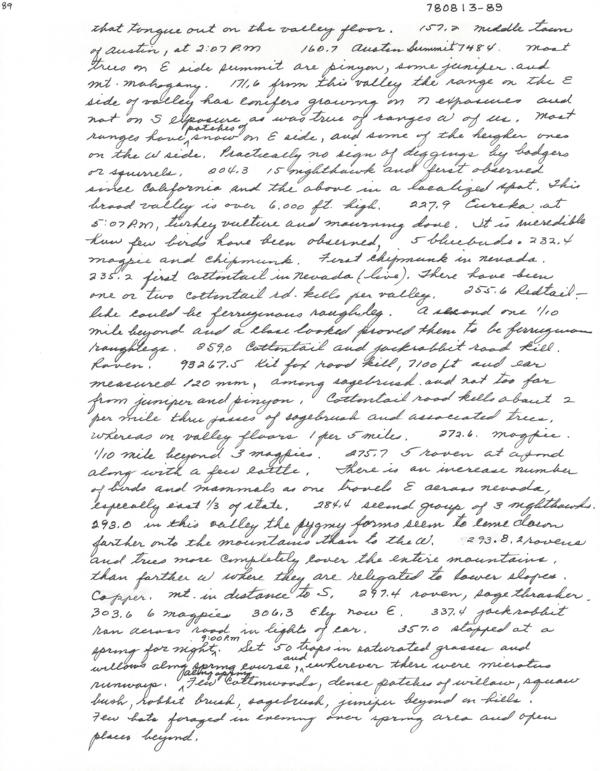 89
780813-89
that tongue out on the valley floor. 157.2 middle town
of Austin, at 2:07 P.M 160.7 Austin Summit 7484. Most
trees on E side summit are pinyon, some juniper and
mt. mahogany. 171.6 from this valley the range on the E
side of valley has conifers growing on N exposures and
not on S exposure as was true of ranges W of us. Most
patches of
ranges have snow on E side, and some of the higher ones
on the W side. Practically no sign of diggings by badgers
or squirrels. 204.3 15 nighthawk and first observed
since California and the above in a localized spot. This
broad valley is over 6,000 ft. high. 227.9 Eureka at
5:07 P.M, turkey vulture and mourning dove. It is incredible
how few birds have been observed, 5 bluebirds. 232.4
magpie and chipmunk. First chipmunk in Nevada.
235.2 first cottontail in Nevada (live). There have been
one or two cottontail rd. kills per valley. 255.6 Redtail-
like could be ferruginous roughleg. A second one 1/10
mile beyond and a close looked proved them to be ferruginous
roughlegs. 259.0 Cottontail and jackrabbit road kill.
Raven. 93267.5 Kit fox road kill, 7100 ft and ear
measured 120 mm, among sagebrush and not too far
from juniper and pinyon. Cottontail road kills about 2
per mile thru passes of sagebrush and associated trees,
whereas on valley floors 1 per 5 miles. 272.6. magpie.
1/10 mile beyond 3 magpies. 275.7 5 raven at a pond
along with a few cattle. There is an increase number
of birds and mammals as one travels E across Nevada,
especially east 1/3 of state. 284.4 second group of 3 nighthawks.
293.0 in this valley the pygmy forms seem to come down
farther onto the mountains than to the W. 293.8, 2 ravens
and trees more completely cover the entire mountains,
than farther W where they are relegated to lower slopes.
Copper. mt. in distance to S. 297.4 raven, sage thrasher.
303.6 6 magpies 306.3 Ely now E. 337.4 jackrabbit
ran across road in lights of car. 357.0 stopped at a
9:00 P.M
spring for night. Set 50 traps in saturated grasses and
and
willows along spring course, wherever there were microtus
along spring
runways. Few cottonwoods, dense patches of willow, squaw
bush, rabbit brush, sagebrush, juniper beyond on hills.
Few bats foraged in evening over spring area and open
places beyond.